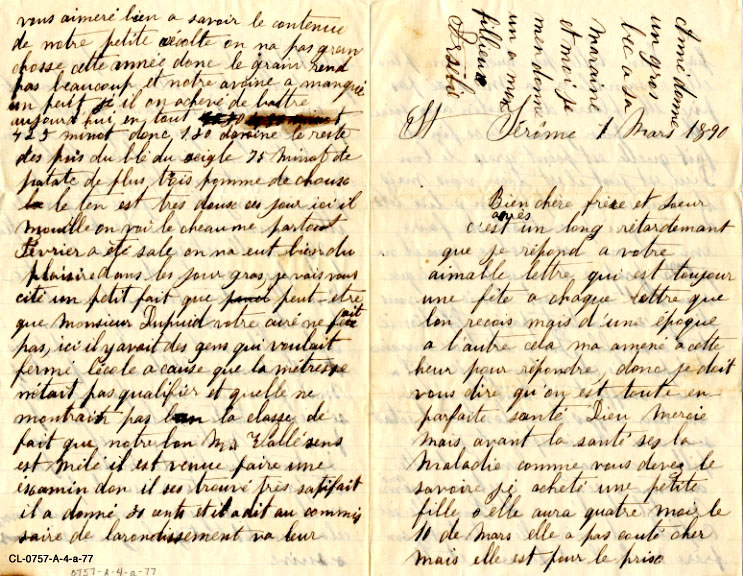 St Jérôme 1 Mars 1890
Bien chère frère et Soeur
après
c'est un long retardement
que je répond a votre
aimable lettre, qui est toujour
une fête a chaque lettre que
lon recois mais d'une époque
a l'autre cela ma amené a cette
heur pour répondre, donc je doit
vous dire qu'on est toute en
parfaite santé Dieu Mercie
Mais avant la santé ses la
Maladie comme vous devez le
savoire jé acheté une petite
fille elle aura quatre mois, le
10 de Mars elle a pas couté cher
mais elle est pour le prise
vous aimeré bien a savoir le contenue
de notre petite récolte on na pas gran
chosse cette année donc le grain rend
pas beaucoup et notre avoine a manqué
un petit je il on achevé de battre
aujourd hui en tout
425 minot donc 130 davoine le reste
des pois du blé du seigle 75 minot de
patate de plus trois pomme de chouse
le ton est tres douse ces jour ici il
mouille on voi le cheaume partout
Février a été sale on na eut bien du
plaisire dans les jour gras, je vais vous
cité un petit fait que peut-etre
que Monsieur Dupuid votre curé ne fait
pas, ici il y avait des gens qui voulait
fermé lécole a cause que la métresse
nétait pas qualifier et quelle ne
montrait pas la classe de
fait que notre bon Mr Lallé sens
est mélé il est venue faire une
examin don il ses trouvé très satifait
il a donné 30 cents et il a dit au commis
saire de larondissement va leur
Aimé donne
un gros
bec a sa
maraine
et moi je
men donne
un a mon
filleux
Arsélie
CL-0757-A-4-a-77
0757-A-4-a-77